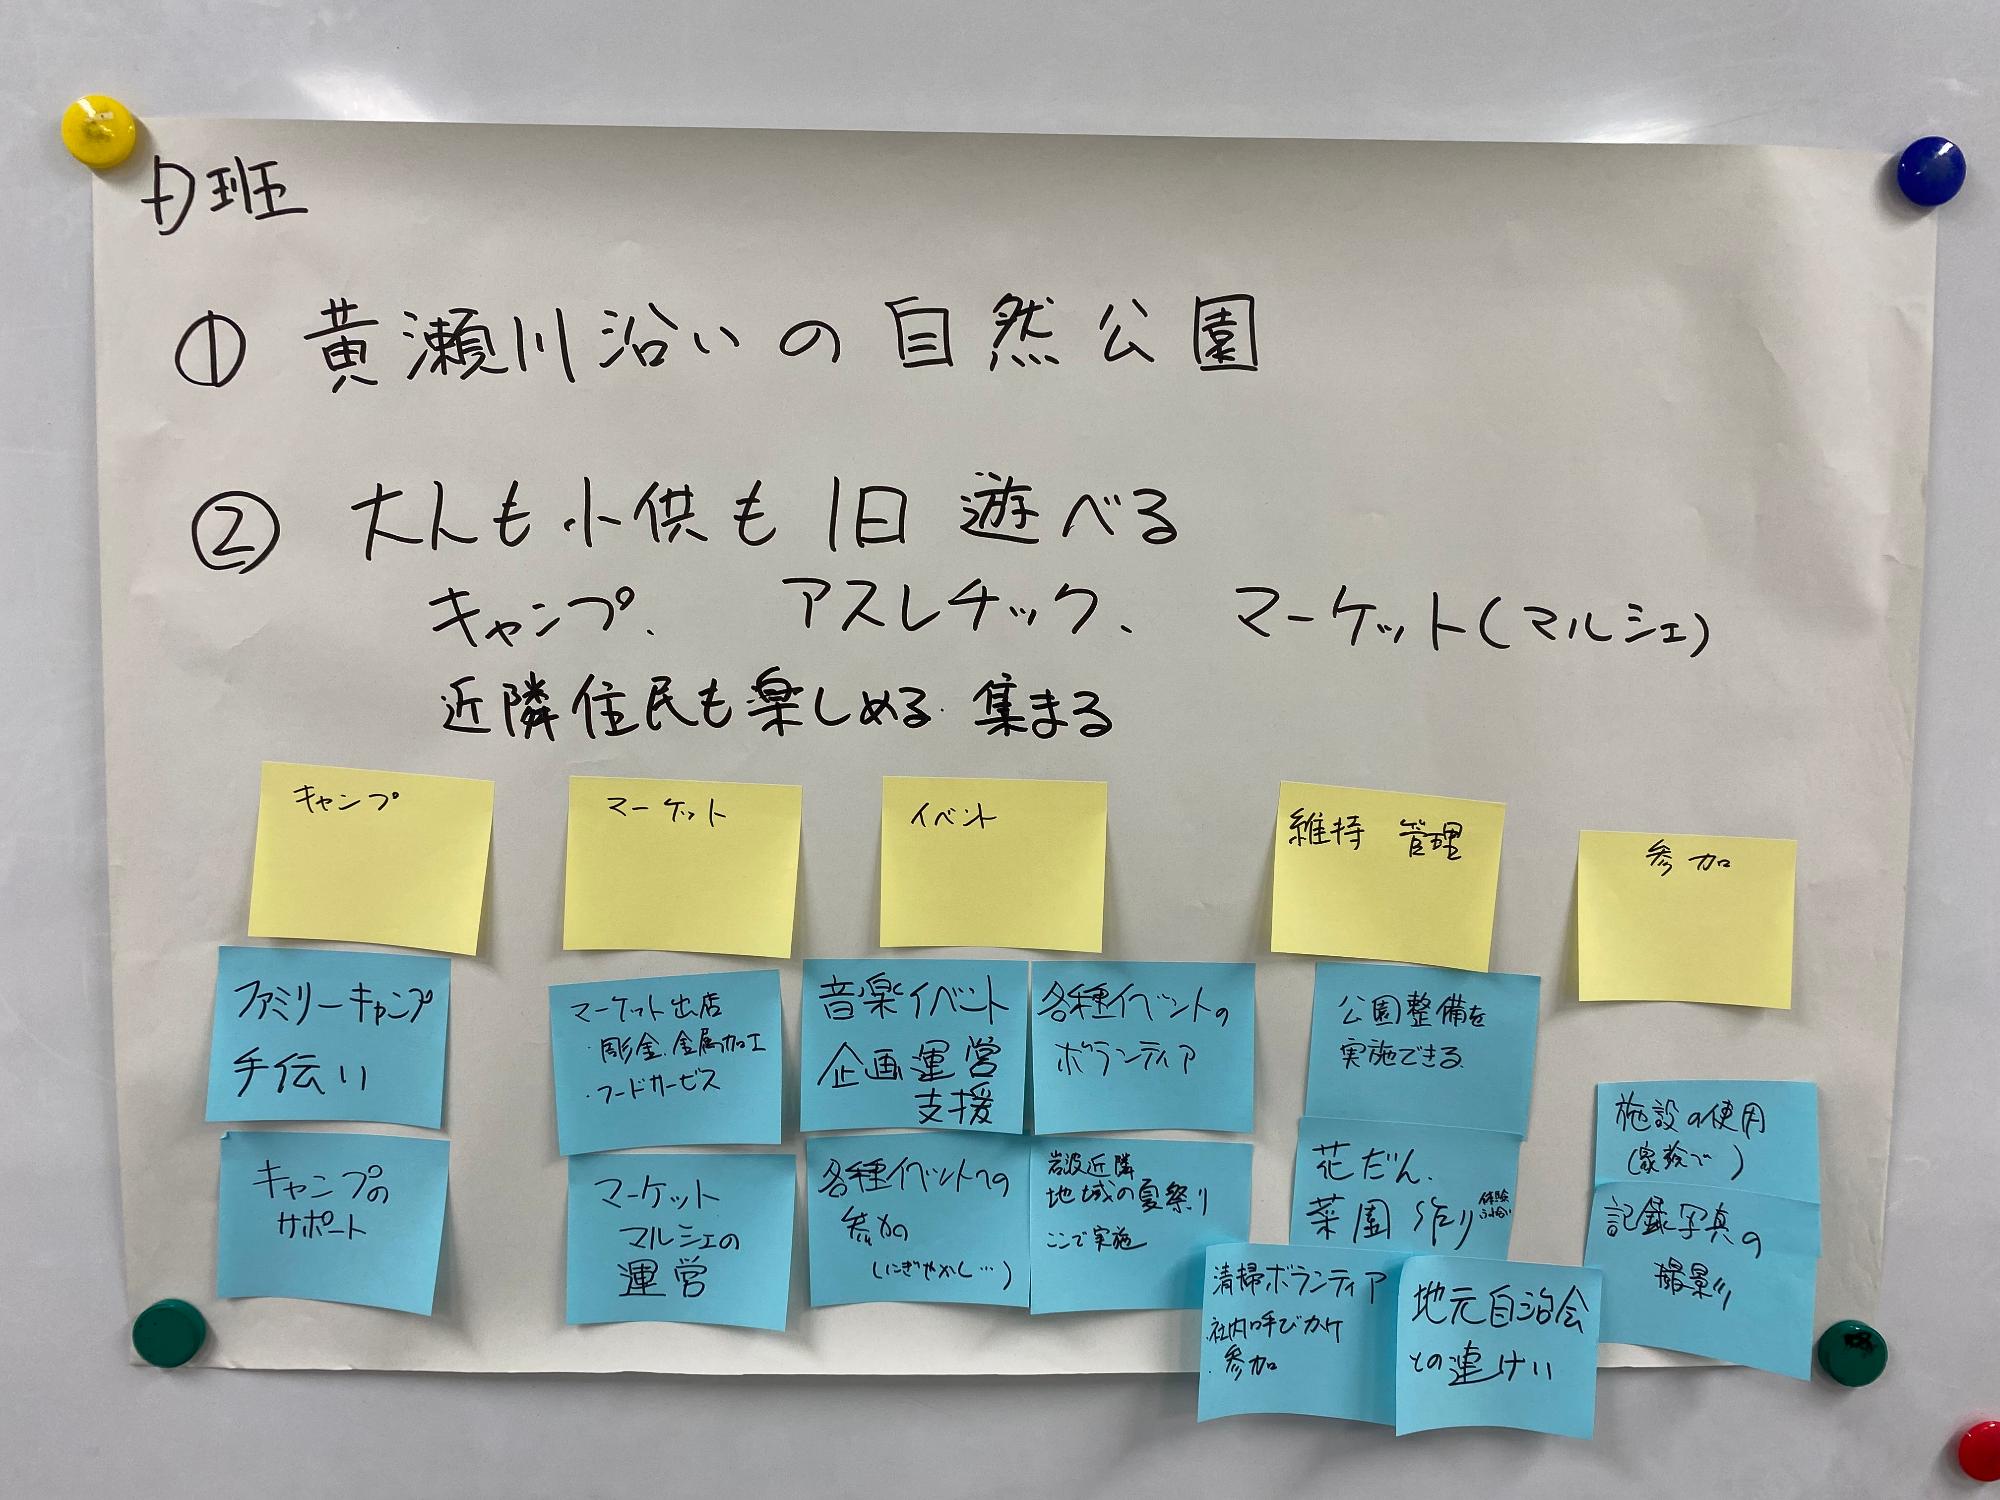 D班
① 黄瀬川沿いの自然公園
② 大人も小供も1日遊べる
キャンプ、 アスレチック、 マーケット(マルシェ)
近隣住民も楽しめる 集まる
キャンプ
ファミリーキャンプ
手伝い
キャンプの
サポート
マーケット
マーケット出店
・彫金、金属加工
・フードサービス
マーケット
マルシェの
運営
イベント
音楽イベント
企画運営
支援
各種イベントの
ボランティア
各種イベントへの
参加
(にぎやかし…)
岩波近隣
地域の夏祭り
ここで実施
維持 管理
公園整備を
実施できる
花だん、
菜園作り
清掃ボランティア
・社内呼びかけ
・参加
地元自治会
との連けい
参加
施設の使用
(家族で)
記録写真の
撮影